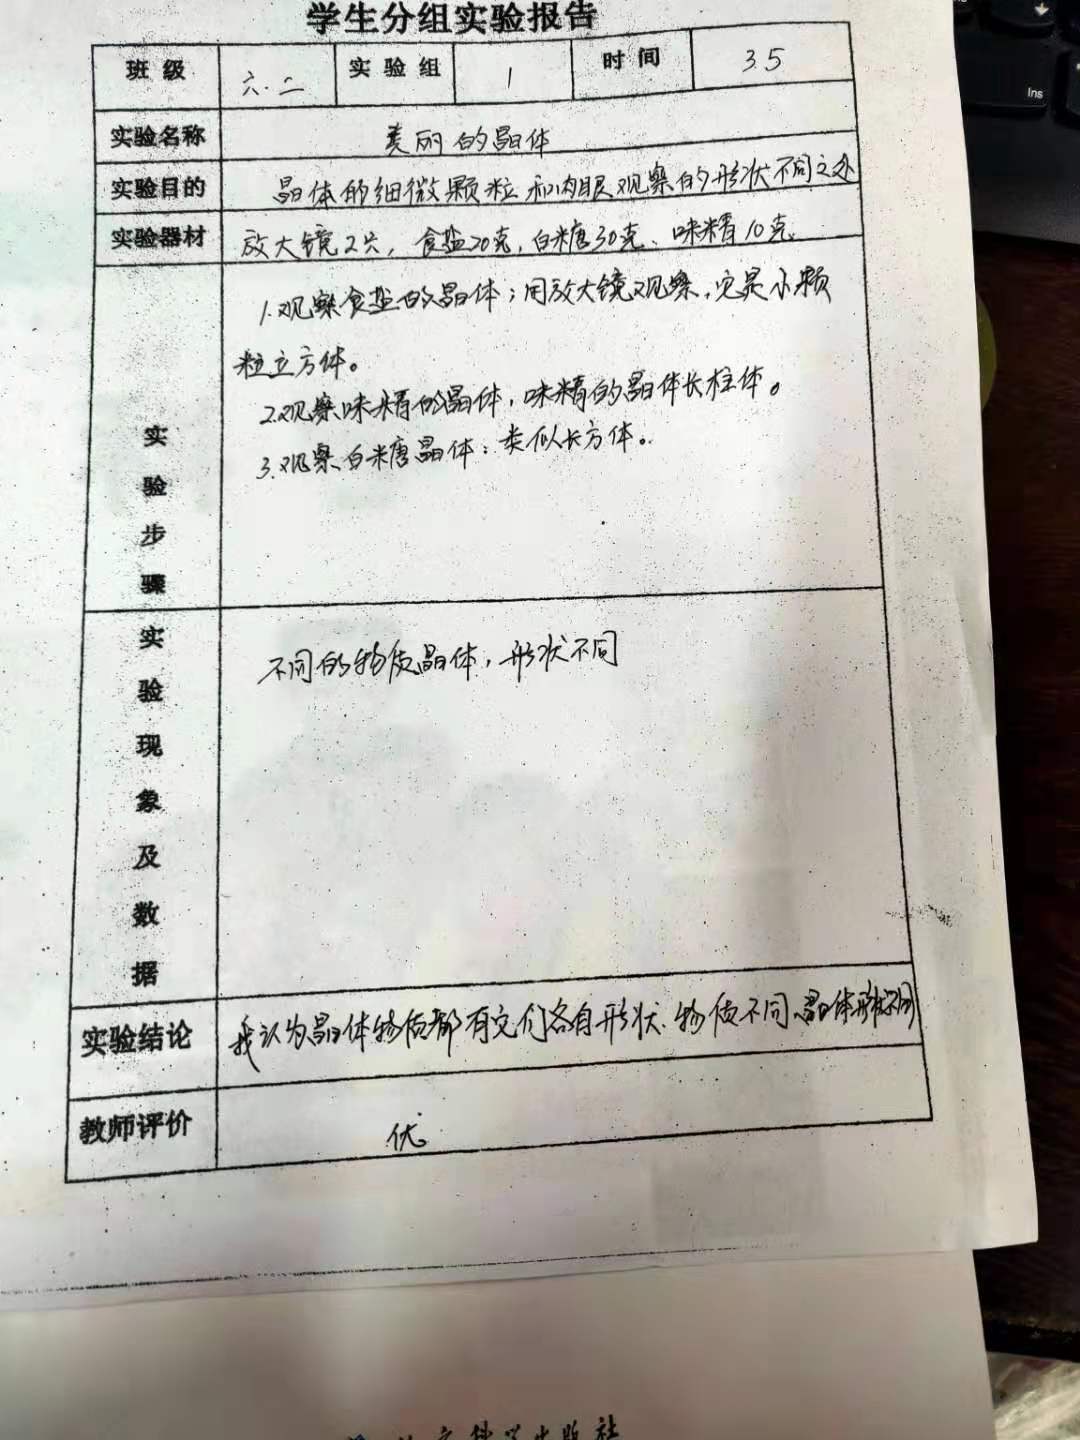 学生分组实验报告
班级 六.二 实验组 1 时间 35
实验名称 美丽的晶体
实验目的 晶体的细微颗粒和肉眼观察的形状不同之处
实验器材 放大镜2只，食盐20克，白糖30克、味精10克
实验步骤
1.观察食盐的晶体；用放大镜观察，它是小颗
粒立方体。
2.观察味精的晶体，味精的晶体长柱体。
3.观察白糖晶体：类似长方体。
实验现象及数据
不同的物质晶体，形状不同
实验结论 我认为晶体物质都有它们各自形状.物质不同晶体形状不同
教师评价 优
Ins
出版社